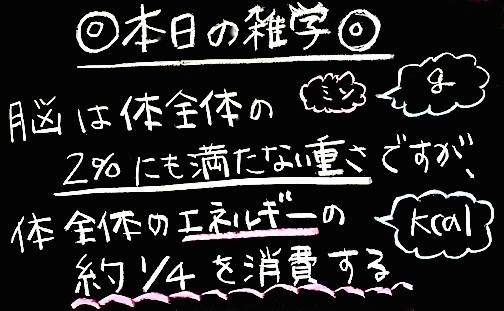 ◎本日の雑学◎
脳は体全体の
g
2%にも満たない重さですが、
体全体のエネルギーの
kcal
約1/4を消費する